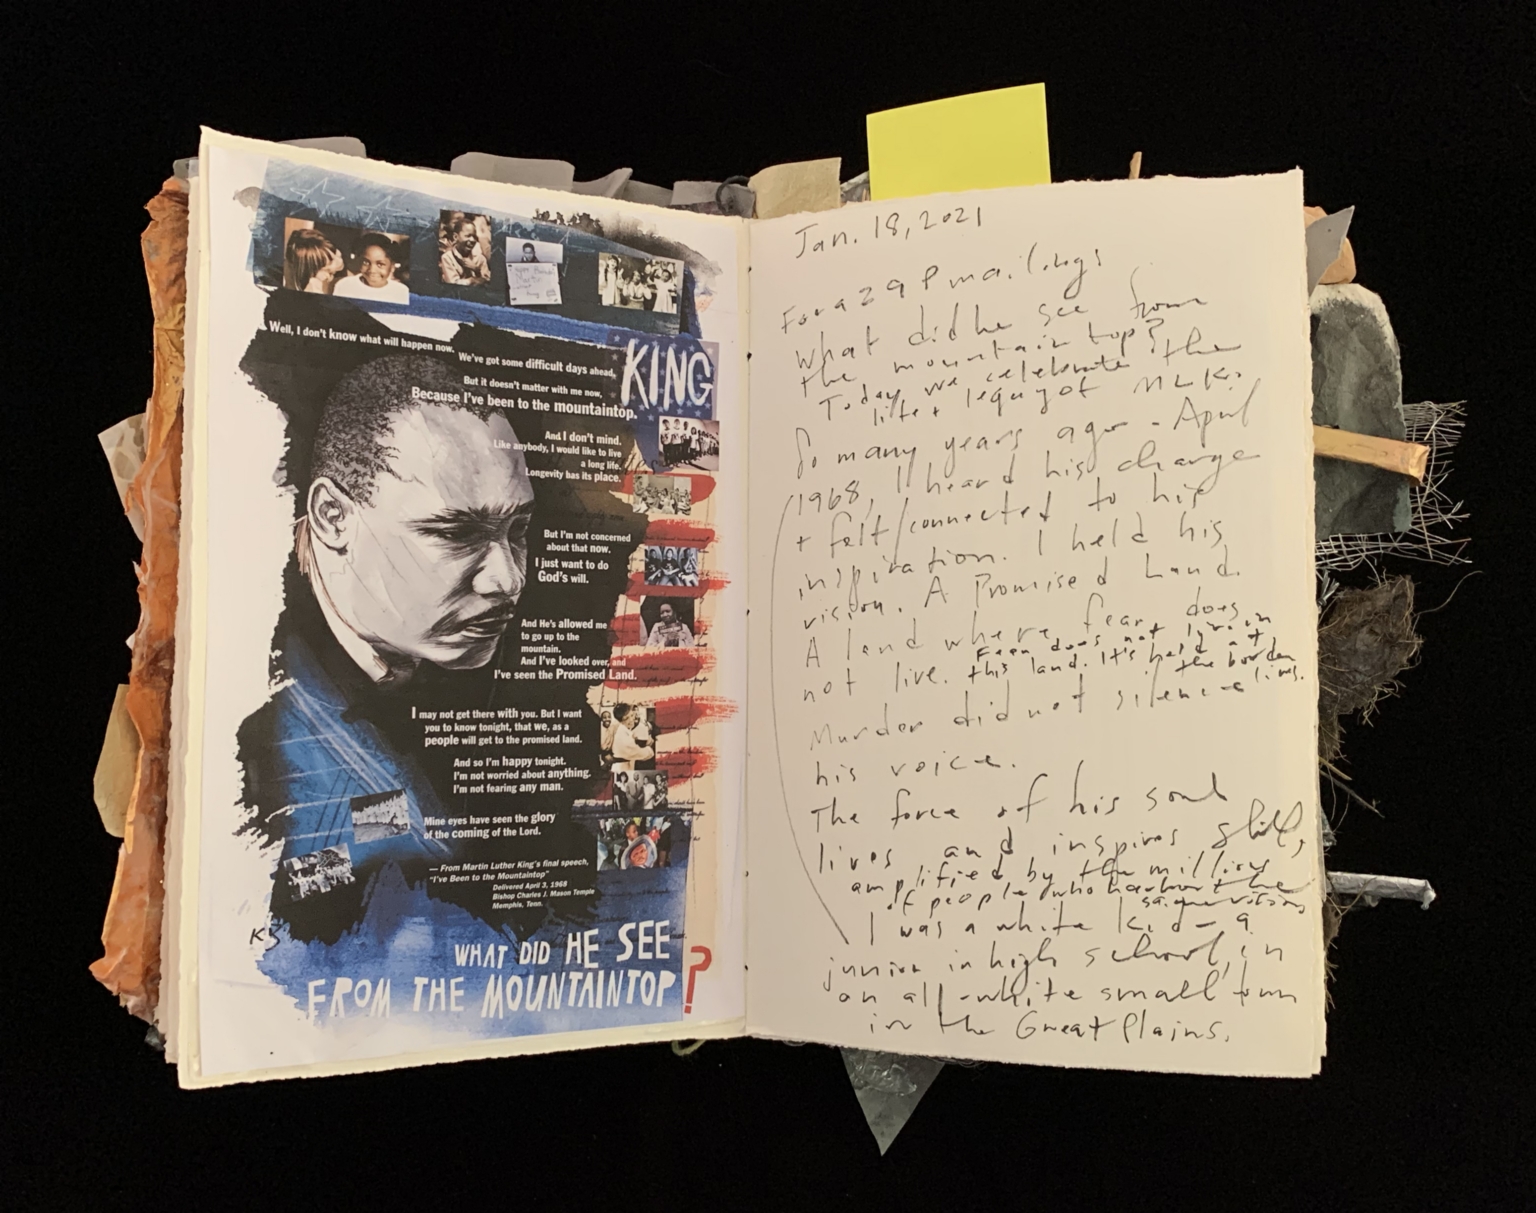 KING
Well, I don't know what will happen now.
We've got some difficult days ahead,
But it doesn't matter with me now,
Because I've been to the mountaintop.
And I don't mind.
Like anybody, I would like to live
a long life.
Longevity has its place.
But I'm not concerned
about that now.
I just want to do
God's will.
And He's allowed me
to go up to the
mountain.
And I've looked over, and
I've seen the Promised Land.
I may not get there with you. But I want
you to know tonight, that we, as a
people will get to the promised land.
And so I'm happy tonight.
I'm not worried about anything.
I'm not fearing any man.
Mine eyes have seen the glory
of the coming of the Lord.
— From Martin Luther King's final speech,
"I've Been to the Mountaintop"
Delivered April 3, 1968
Bishop Charles J. Mason Temple
Memphis, Tenn.
WHAT DID HE SEE
FROM THE MOUNTAINTOP?
Jan. 18, 2021
mailings
What did he see from
the mountain top?
Today we celebrate the
life + legacy of MLK.
So many years ago - April
1968, I heard his charge
+ felt/connected to his
inspiration. I held his
vision. A Promised Land.
A land where fear does
not live. Fear does not live in
this land. It's held at
the border lines.
Murder did not silence
his voice.
The force of his soul
lives and inspires still,
amplified by the millions
of people who harbor the
same vision
I was a white kid - a
junior in high school, in
an all-white small town
in the Great Plains.